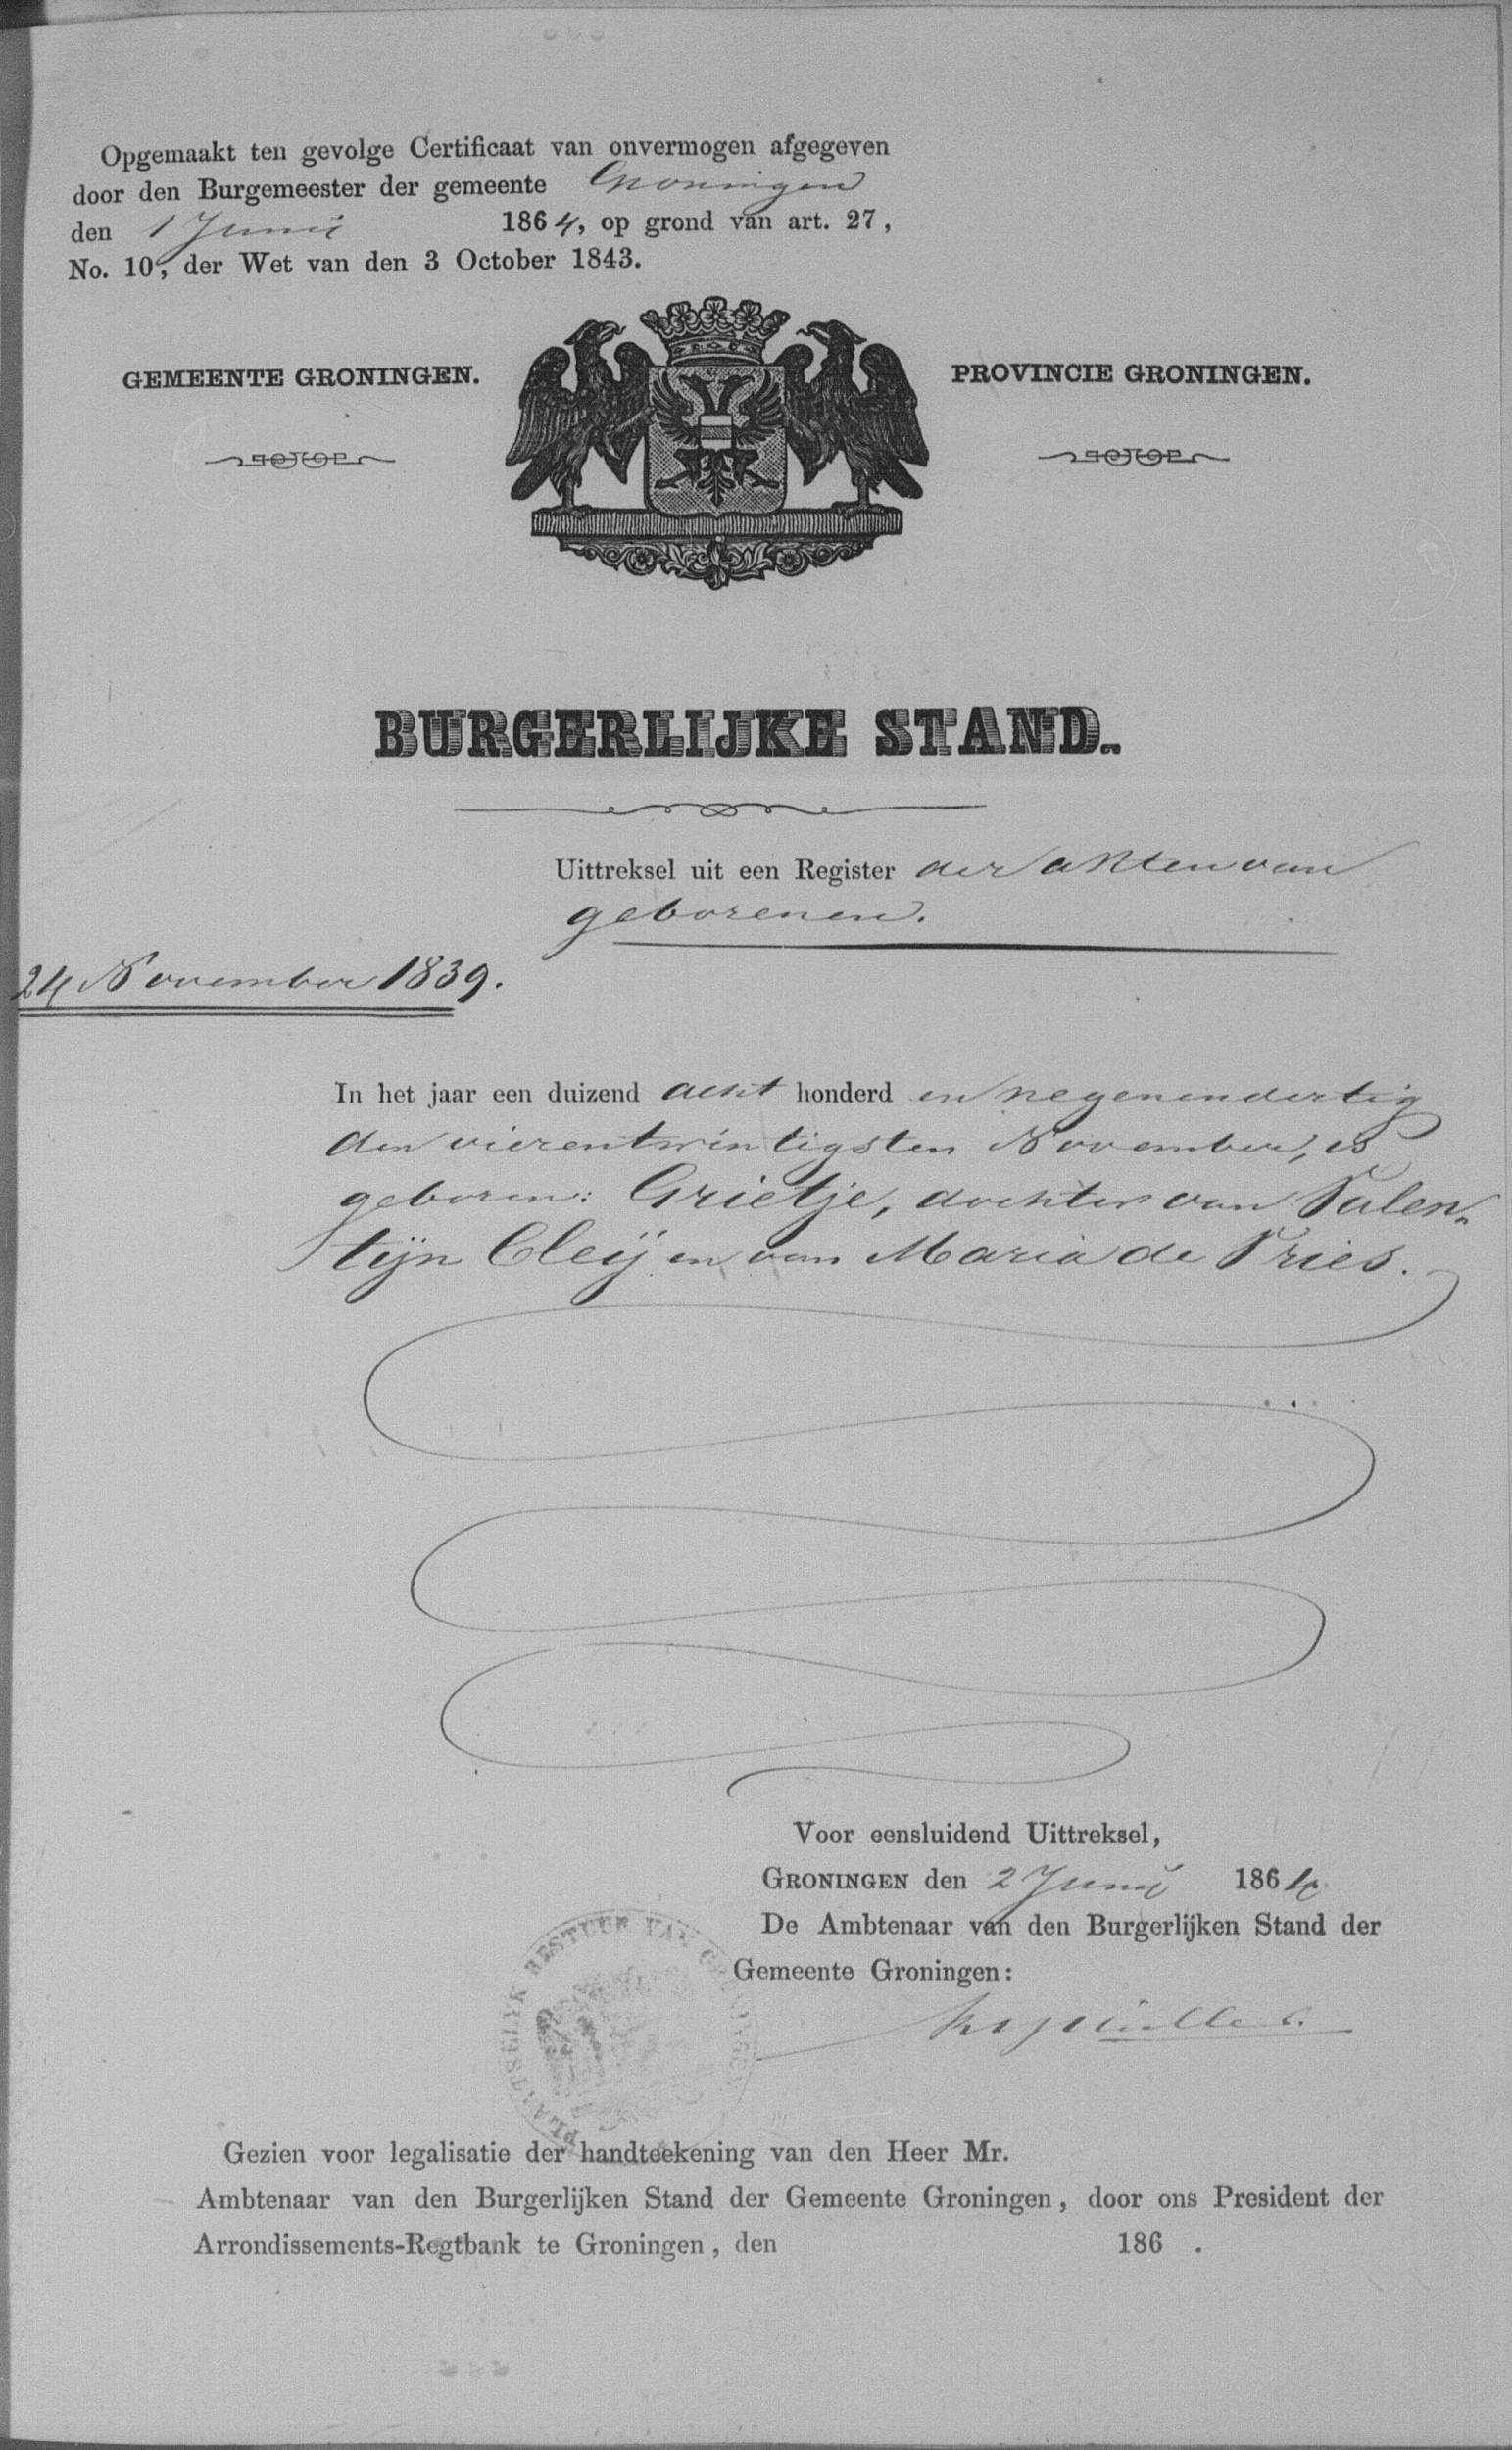 Opgemaakt ten gevolge Certificaat van onvermogen afgegeven
door den Burgemeester der gemeente Groningen
den 1 Junij 1864, op grond van art. 27,
No. 10, der Wet van den 3 October 1843.
GEMEENTE GRONINGEN.
PROVINCIE GRONINGEN.
BURGERLIJKE STAND.
Uittreksel uit een Register der akten van
geborenen.
24 November 1839.
In het jaar een duizend acht honderd en negenendertig
den vierentwintigsten November, is
geboren: Grietje, dochter van Valen-
tijn Cleij en van Maria de Vries.
Voor eensluidend Uittreksel,
GRONINGEN den 2 Junij 1864.
De Ambtenaar van den Burgerlijken Stand der
Gemeente Groningen:
PLAATSELYK BESTUUR VAN GRONINGEN
Gezien voor legalisatie der handteekening van den Heer Mr.
Ambtenaar van den Burgerlijken Stand der Gemeente Groningen, door ons President der
Arrondissements-Regtbank te Groningen, den 186 .